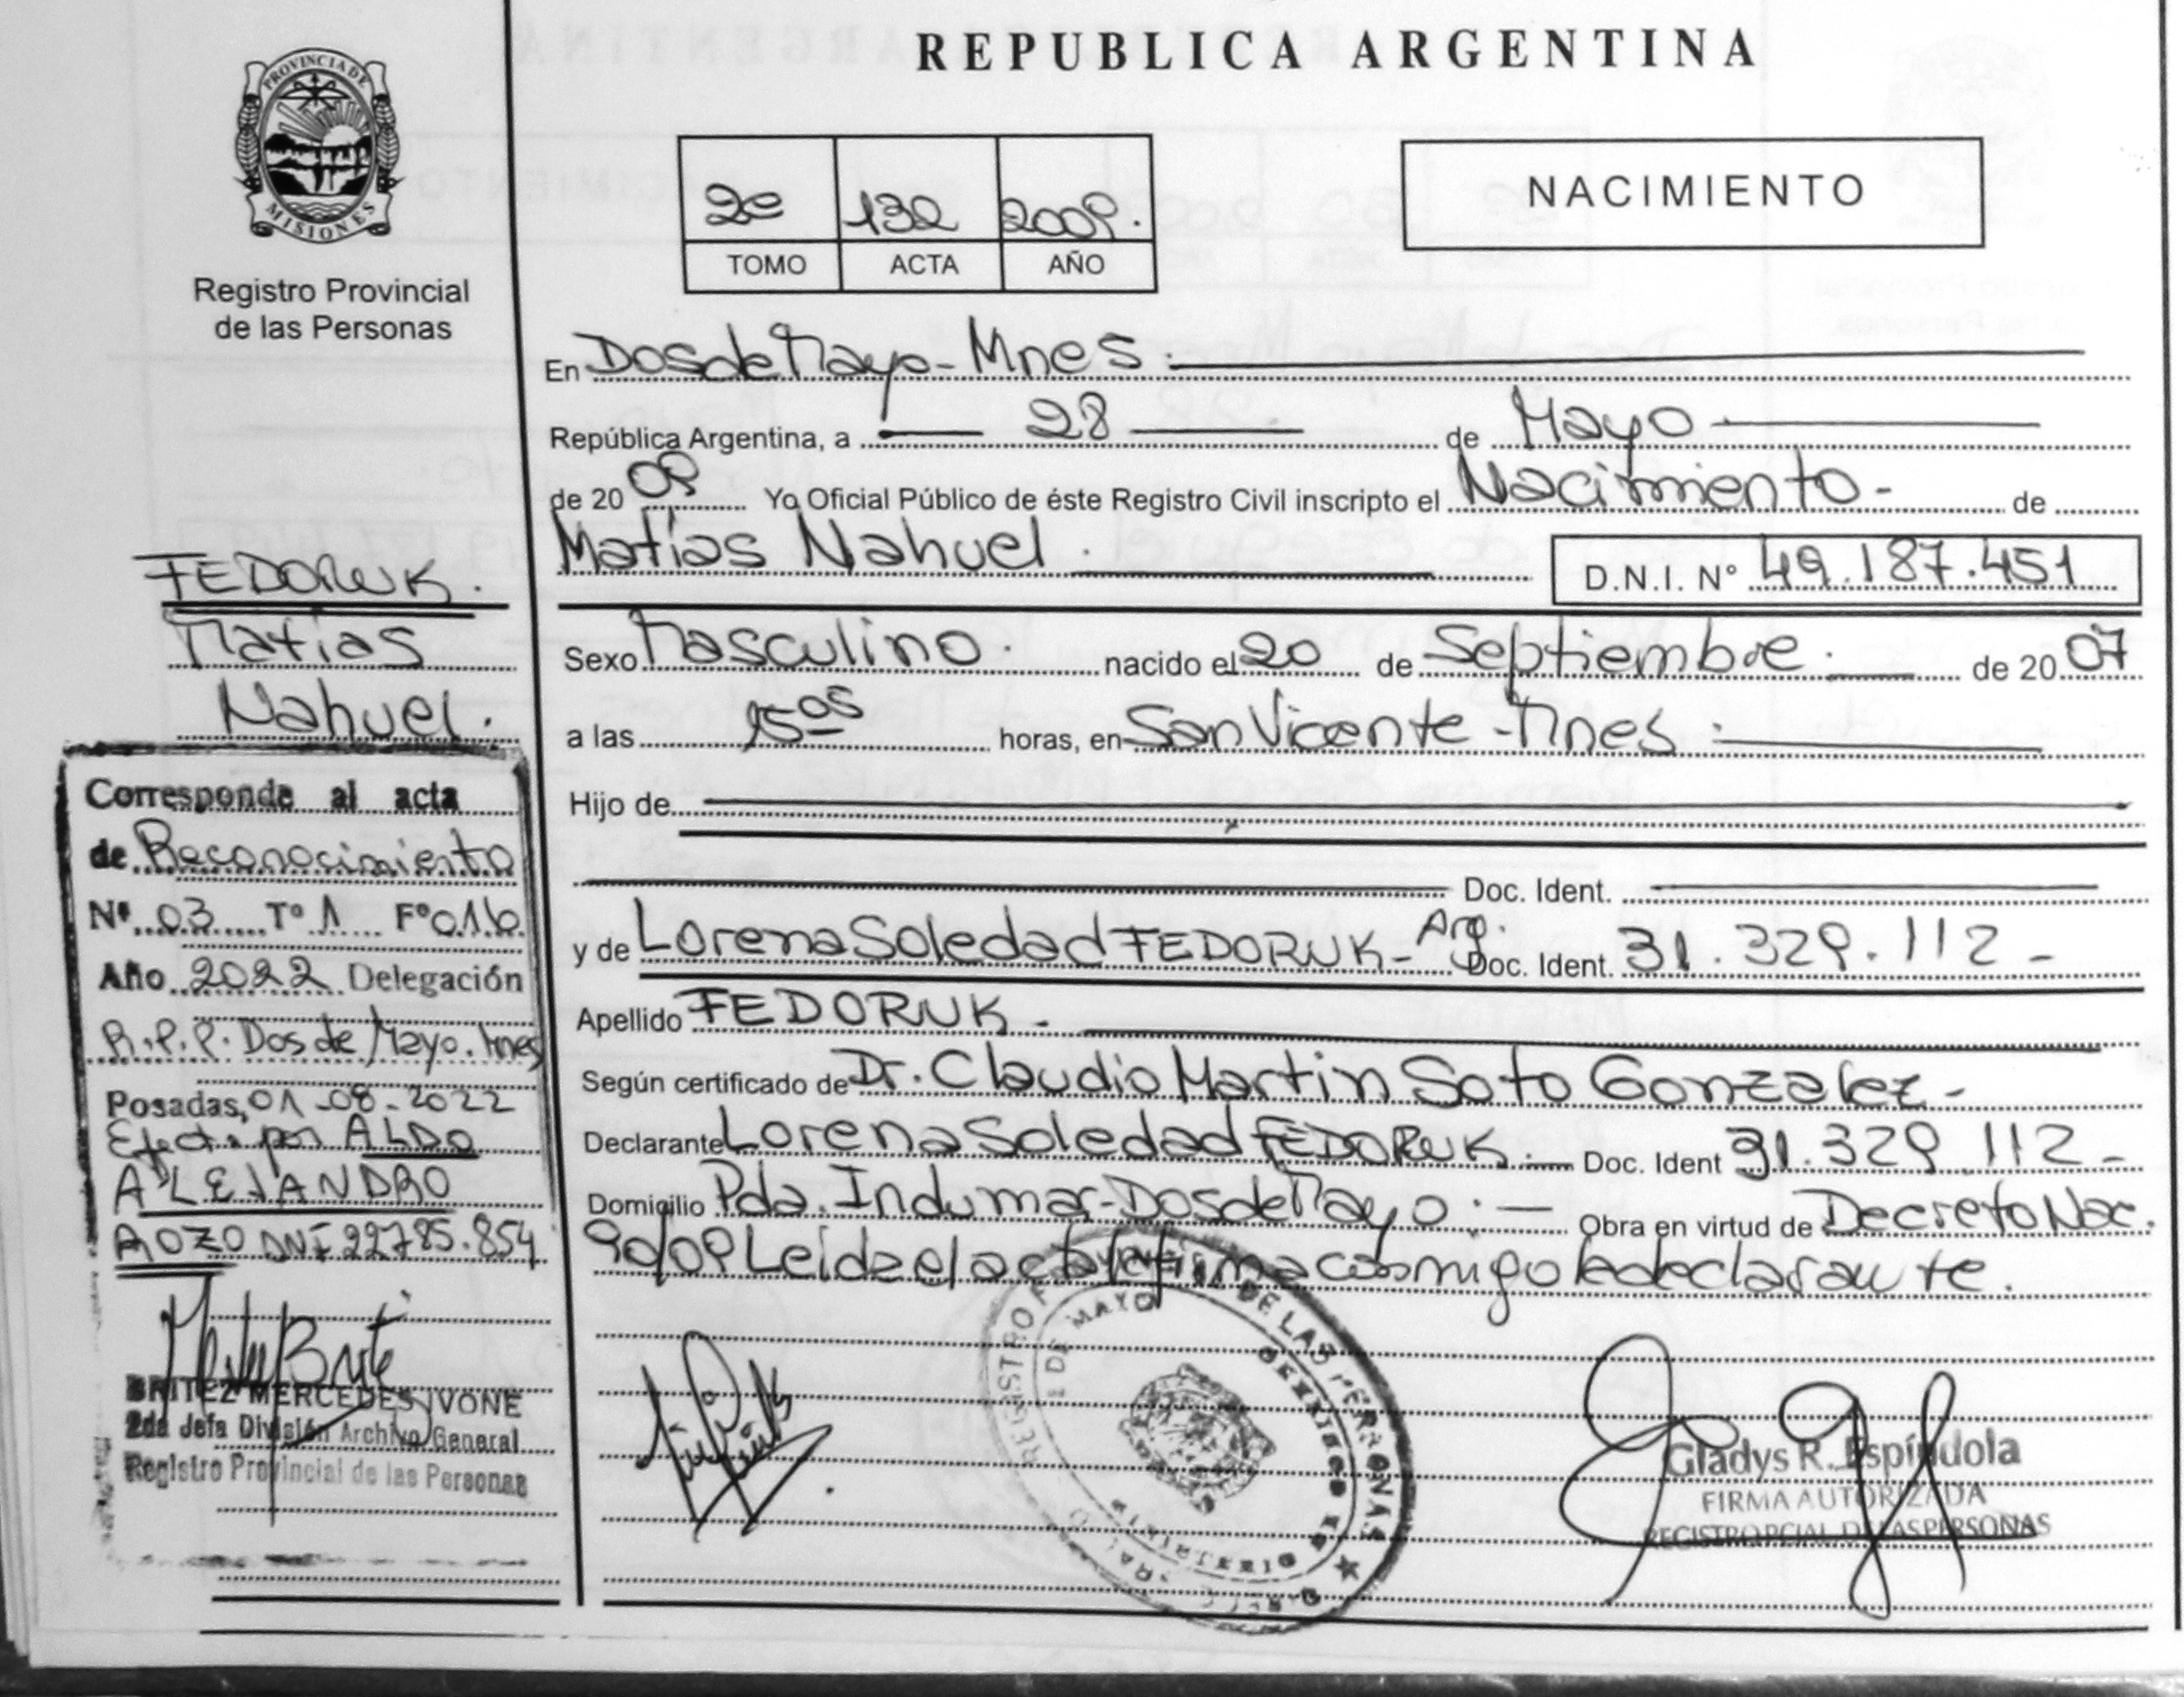 REPUBLICA ARGENTINA
PROVINCIA DE
MISIONES
Registro Provincial
de las Personas
2º 132 2009.
TOMO ACTA AÑO
NACIMIENTO
En Dos de Mayo - Mnes.
República Argentina, a 28 de Mayo
de 20 09 Yo Oficial Público de éste Registro Civil inscripto el Nacimiento - de
Matías Nahuel. D.N.I. Nº 49.187.451
Sexo Masculino. nacido el 20 de Septiembre. de 20 07
a las 15 05 horas, en San Vicente - Mnes.
Hijo de
Doc. Ident.
y de Lorena Soledad FEDORUK - Arg. Doc. Ident. 31.329.112 -
Apellido FEDORUK -
Según certificado de Dr. Claudio Martin Soto Gonzalez -
Declarante Lorena Soledad FEDORUK. Doc. Ident 31.329.112 -
Domicilio Pda. Indumar - Dos de Mayo. Obra en virtud de Decreto Nac.
90/09 Leída el acta la firma conmigo la declarante.
FEDORUK.
Matias
Nahuel.
Corresponde al acta
de Reconocimiento
Nº 03 Tº 1 Fº 016
Año 2022 Delegación
R.P.P. Dos de Mayo. Mnes
Posadas, 01-08-2022
Efect. por ALDO
ALEJANDRO
AOZO DNI 22785.854
BRITEZ MERCEDES IVONE
2da Jefa División Archivo General
Registro Provincial de las Personas
DE LAS PERSONAS
DE MAYO
Gladys R. Espíndola
FIRMA AUTORIZADA
REGISTRO PCIAL. DE LAS PERSONAS